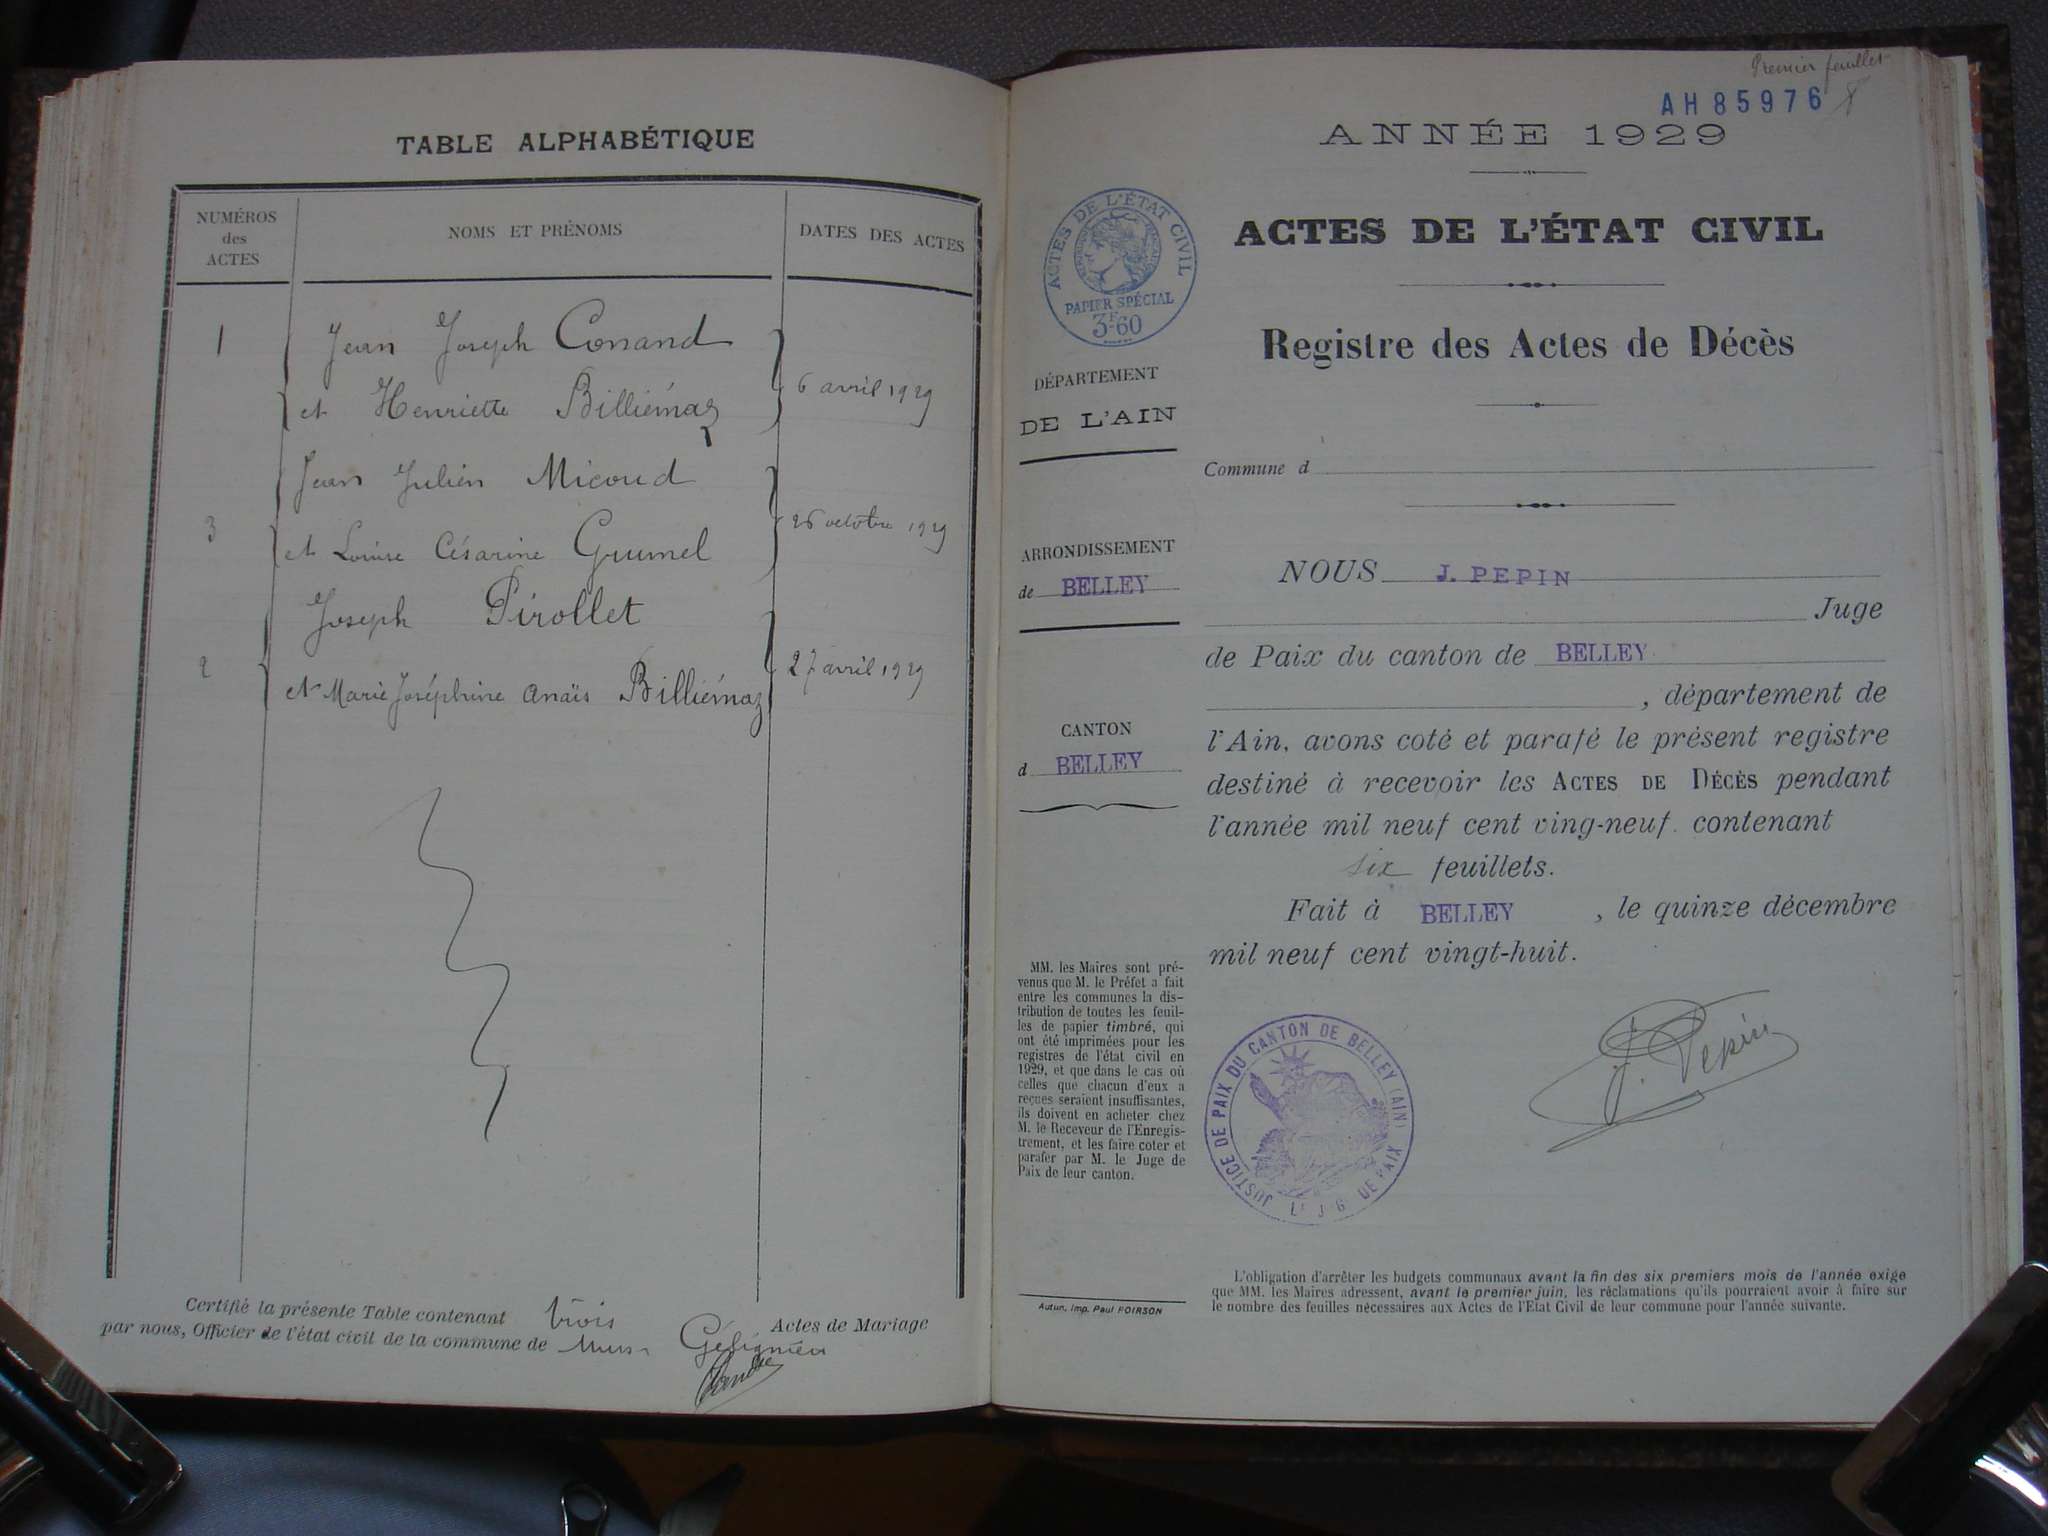 TABLE ALPHABÉTIQUE
NUMÉROS
des
ACTES
NOMS ET PRÉNOMS
DATES DES ACTES
1
Jean Joseph Conand
et Henriette Billiémaz
6 avril 1929
Jean Julien Micoud
3
et Louise Césarine Grumel
26 octobre 1929
Joseph Pirollet
2
et Marie Joséphine Anaïs Billiémaz
27 avril 1929
Certifié la présente Table contenant trois Actes de Mariage
par nous, Officier de l'état civil de la commune de Murs Gélignieu
Premier feuillet
AH 85976
ANNÉE 1929
ACTES DE L'ÉTAT CIVIL
RÉPUBLIQUE FRANÇAISE
PAPIER SPÉCIAL
3F60
ACTES DE L'ÉTAT CIVIL
Registre des Actes de Décès
DÉPARTEMENT
DE L'AIN
Commune d
ARRONDISSEMENT
de BELLEY
CANTON
d BELLEY
NOUS J. PEPIN
Juge
de Paix du canton de BELLEY
, département de
l'Ain, avons coté et parafé le présent registre
destiné à recevoir les ACTES DE DÉCÈS pendant
l'année mil neuf cent ving-neuf. contenant
six feuillets.
Fait à BELLEY , le quinze décembre
mil neuf cent vingt-huit.
MM. les Maires sont pré-
venus que M. le Préfet a fait
entre les communes la dis-
tribution de toutes les feuil-
les de papier timbré, qui
ont été imprimées pour les
registres de l'état civil en
1929, et que dans le cas où
celles que chacun d'eux a
reçues seraient insuffisantes,
ils doivent en acheter chez
M. le Receveur de l'Enregis-
trement, et les faire coter et
parafer par M. le Juge de
Paix de leur canton.
JUSTICE DE PAIX DU CANTON DE BELLEY (AIN)
LE J G DE PAIX
J. Pepin
Autun, Imp. Paul POIRSON
L'obligation d'arrêter les budgets communaux avant la fin des six premiers mois de l'année exige
que MM. les Maires adressent, avant le premier juin, les réclamations qu'ils pourraient avoir à faire sur
le nombre des feuilles nécessaires aux Actes de l'Etat Civil de leur commune pour l'année suivante.